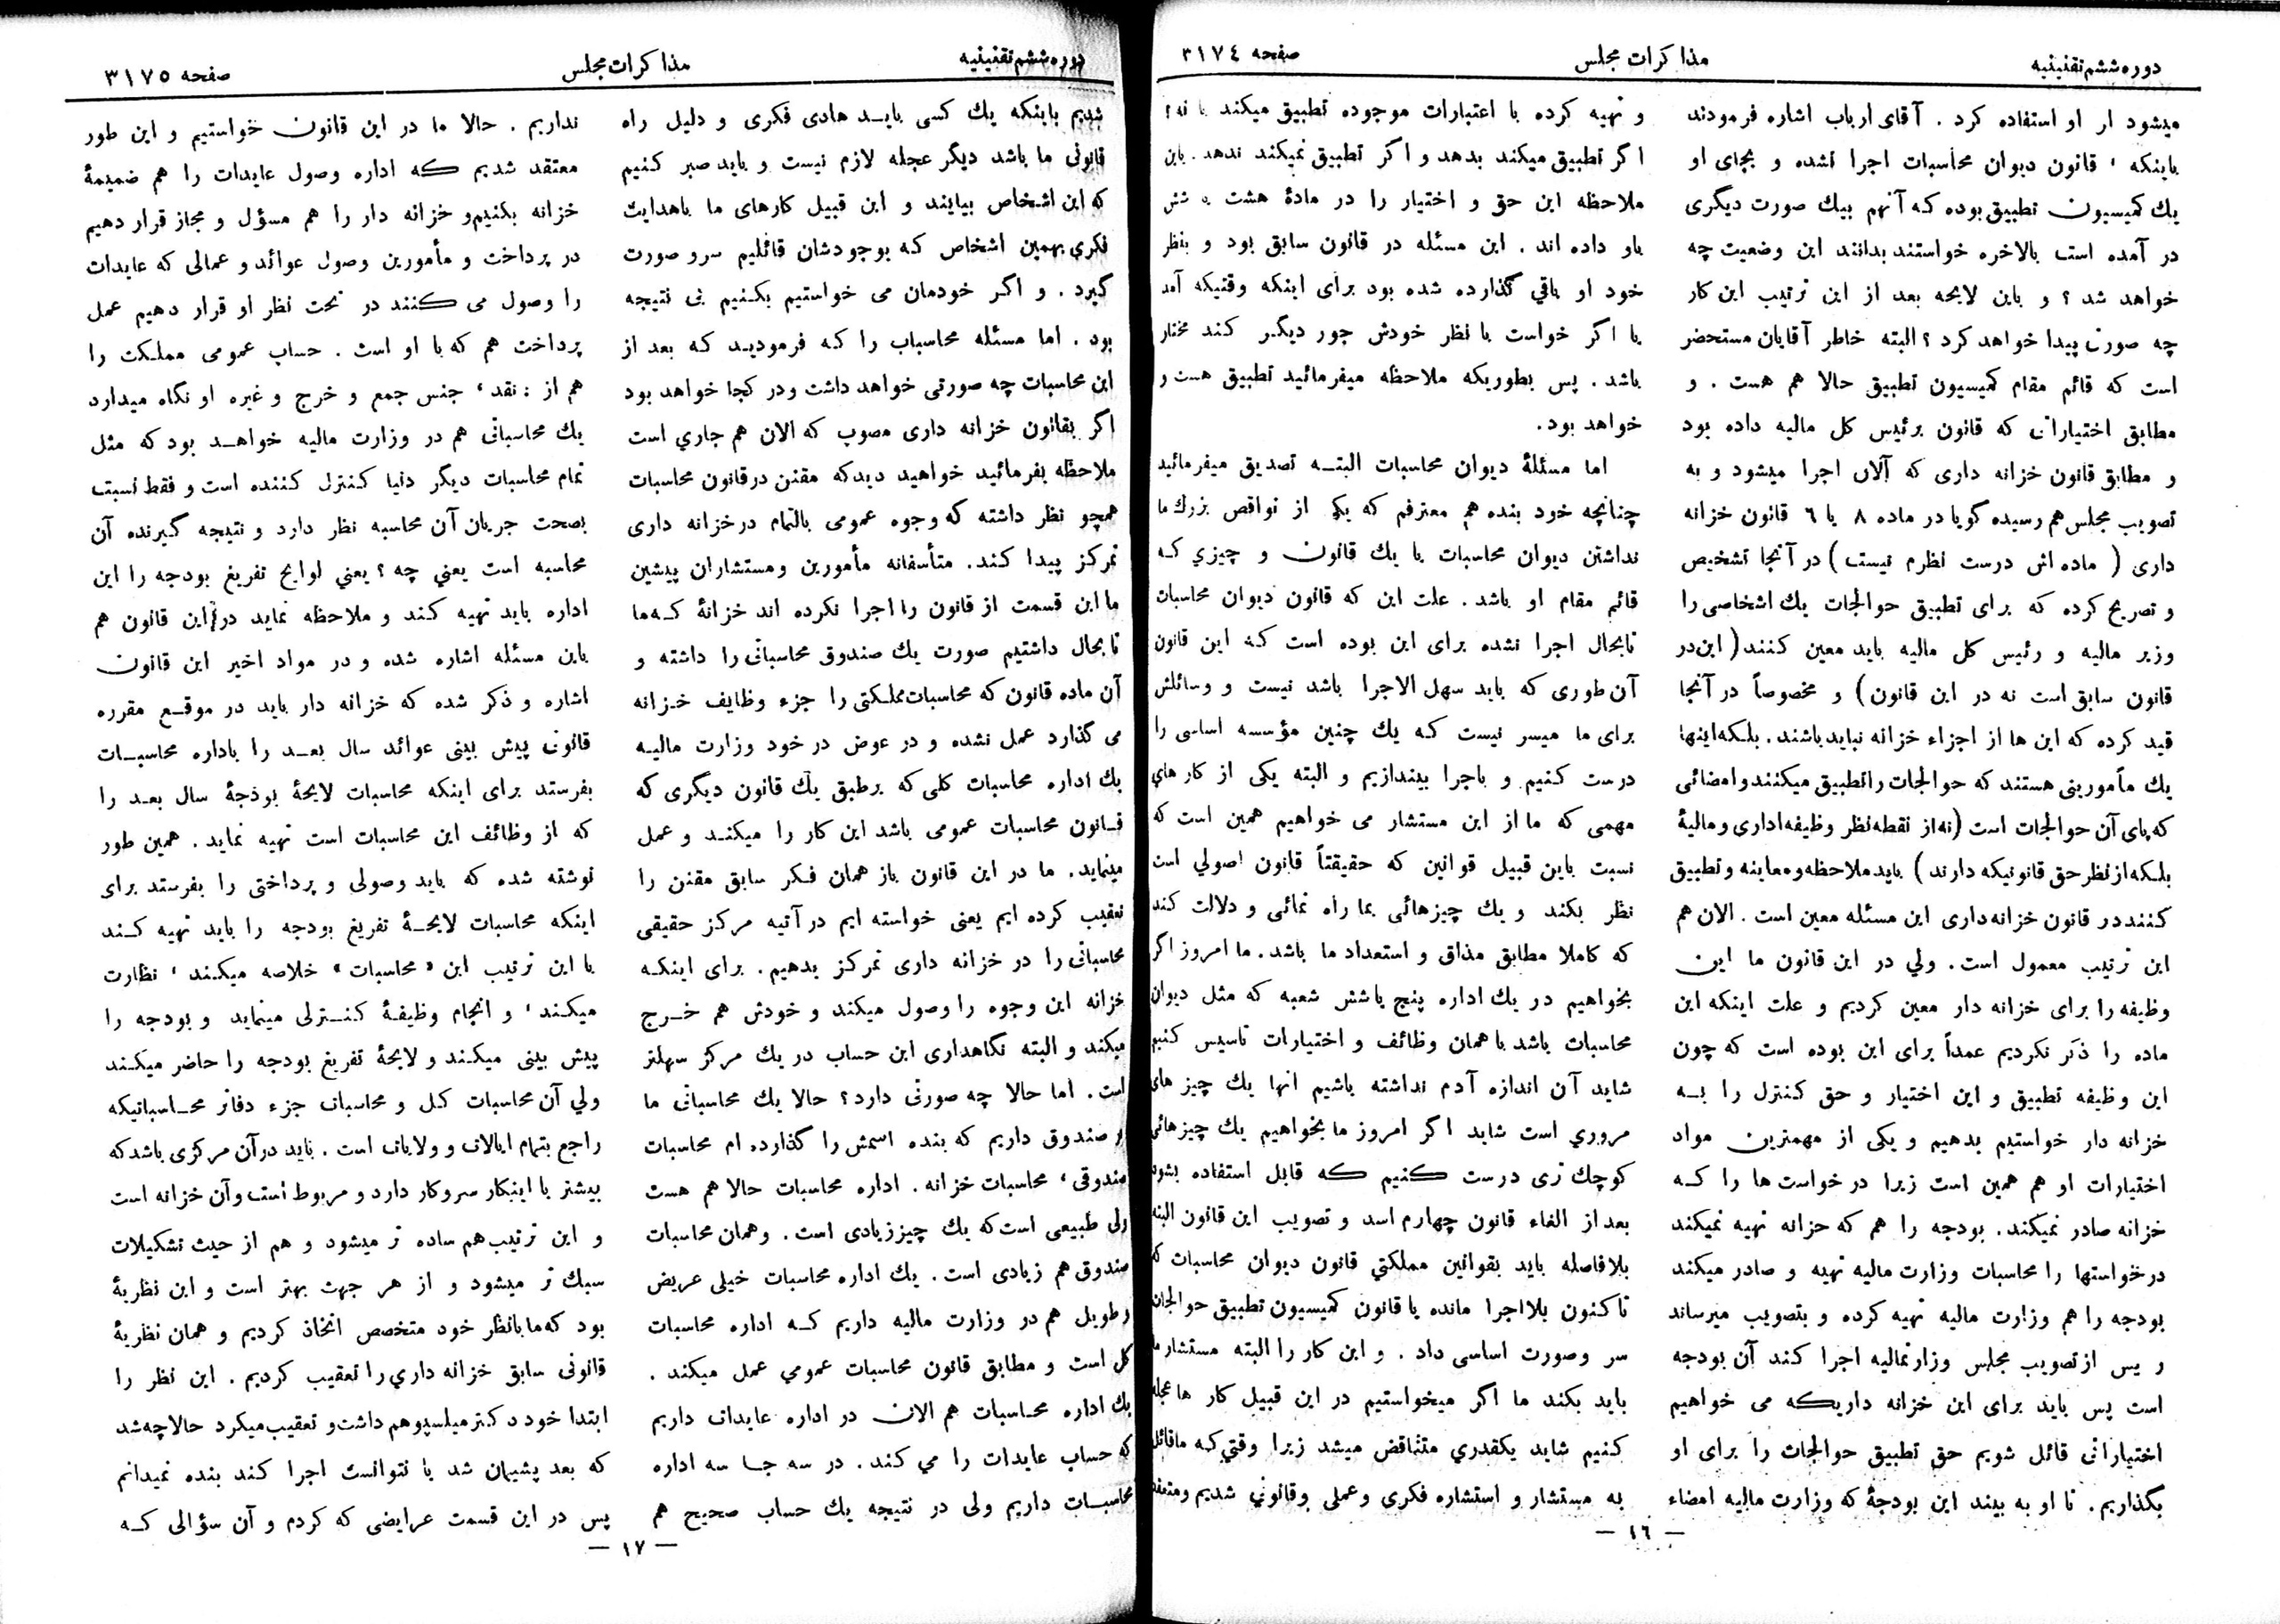 دوره ششم تقنینیه
مذاکرات مجلس
صفحه ۳۱۷٤
میشود از او استفاده کرد . آقای ارباب اشاره فرمودند
باینکه ، قانون دیوان محاسبات اجرا نشده و بجای او
یك کمیسیون تطبیق بوده که آنهم بیك صورت دیگری
در آمده است بالاخره خواستند بدانند این وضعیت چه
خواهد شد ؟ و باین لایحه بعد از این ترتیب این کار
چه صورت پیدا خواهد کرد ؟ البته خاطر آقایان مستحضر
است که قائم مقام کمیسیون تطبیق حالا هم هست . و
مطابق اختیاراتی که قانون برئیس کل مالیه داده بود
و مطابق قانون خزانه داری که آلان اجرا میشود و به
تصویب مجلس هم رسیده گویا در ماده ۸ یا ٦ قانون خزانه
داری ( ماده اش درست نظرم نیست ) در آنجا تشخیص
و تصریح کرده که برای تطبیق حوالجات یك اشخاصی را
وزیر مالیه و رئیس کل مالیه باید معین کنند ( این در
قانون سابق است نه در این قانون ) و مخصوصاً در آنجا
قید کرده که این ها از اجزاء خزانه نباید باشند . بلکه اینها
یك مأمورینی هستند که حوالجات را تطبیق میکنند و امضائی
که پای آن حوالجات است (نه از نقطه نظر وظیفه اداری و مالیهٔ
بلکه از نظر حق قانونیکه دارند ) باید ملاحظه و معاینه و تطبیق
کنند در قانون خزانه داری این مسئله معین است . الان هم
این ترتیب معمول است . ولي در این قانون ما این
وظیفه را برای خزانه دار معین کردیم و علت اینکه این
ماده را ذکر نکردیم عمداً برای این بوده است که چون
این وظیفه تطبیق و این اختیار و حق کنترل را به
خزانه دار خواستیم بدهیم و یکی از مهمترین مواد
اختیارات او هم همین است زیرا درخواست ها را که
خزانه صادر نمیکند . بودجه را هم که حزانه تهیه نمیکند
درخواستها را محاسبات وزارت مالیه تهیه و صادر میکند
بودجه را هم وزارت مالیه تهیه کرده و بتصویب میرساند
و پس از تصویب مجلس وزارتمالیه اجرا کند آن بودجه
است پس باید برای این خزانه داریکه می خواهیم
اختیاراتی قائل شویم حق تطبیق حوالجات را برای او
بگذاریم . تا او به بیند این بودجهٔ که وزارت مالیه امضاء
و تهیه کرده با اعتبارات موجوده تطبیق میکند یا نه ؟
اگر تطبیق میکند بدهد و اگر تطبیق نمیکند ندهد . باین
ملاحظه این حق و اختیار را در مادهٔ هشت یا شش
باو داده اند . این مسئله در قانون سابق بود و بنظر
خود او باقي گذارده شده بود برای اینکه وقتیکه آمد
یا اگر خواست با نظر خودش جور دیگر کند مختار
باشد . پس بطوریکه ملاحظه میفرمائید تطبیق هست و
خواهد بود .
اما مسئلهٔ دیوان محاسبات البته تصدیق میفرمائید
چنانچه خود بنده هم معترفم که یکی از نواقص بزرك ما
نداشتن دیوان محاسبات یا یك قانون و چیزي که
قائم مقام او باشد . علت این که قانون دیوان محاسبات
تابحال اجرا نشده برای این بوده است که این قانون
آن طوری که باید سهل الاجرا باشد نیست و وسائلش
برای ما میسر نیست که یك چنین مؤسسه اساسی را
درست کنیم و باجرا بیندازیم و البته یکی از کار های
مهمی که ما از این مستشار می خواهیم همین است که
نسبت باین قبیل قوانین که حقیقتاً قانون اصولي است
نظر بکند و یك چیزهائی بما راه نمائی و دلالت کند
که کاملا مطابق مذاق و استعداد ما باشد . ما امروز اگر
بخواهیم در یك اداره پنج یا شش شعبه که مثل دیوان
محاسبات باشد با همان وظائف و اختیارات تاسیس کنیم
شاید آن اندازه آدم نداشته باشیم انها یك چیز های
مروری است شاید اگر امروز ما بخواهیم یك چیزهائی
کوچك تری درست کنیم که قابل استفاده بشود
بعد از الغاء قانون چهارم اسد و تصویب این قانون البته
بلافاصله باید بقوانین مملکتي قانون دیوان محاسبات که
تاکنون بلااجرا مانده یا قانون کمیسیون تطبیق حوالجات
سر وصورت اساسی داد . و این کار را البته مستشار ما
باید بکند ما اگر میخواستیم در این قبیل کار ها عجله
کنیم شاید یکقدري متناقض میشد زیرا وقتي که ما قائل
به مستشار و استشاره فکری و عملی و قانونی شدیم و معتقد
— ۱٦ —
دوره ششم تقنینیه
مذاکرات مجلس
صفحه ۳۱۷۵
شدیم باینکه یك کسی باید هادی فکری و دلیل راه
قانونی ما باشد دیگر عجله لازم نیست و باید صبر کنیم
که این اشخاص بیایند و این قبیل کارهای ما باهدایت
فکری بهمین اشخاص که بوجودشان قائلیم سرو صورت
گیرد . و اگر خودمان می خواستیم بکنیم بی نتیجه
بود . اما مسئله محاسباب را که فرمودید که بعد از
این محاسبات چه صورتی خواهد داشت ودر کجا خواهد بود
اگر بقانون خزانه داری مصوب که الان هم جاري است
ملاحظه بفرمائید خواهید دید که مقنن در قانون محاسبات
همچو نظر داشته که وجوه عمومی بالتمام در خزانه داری
تمرکز پیدا کند . متأسفانه مأمورین و مستشاران پیشین
ما این قسمت از قانون را اجرا نکرده اند خزانهٔ که ما
تا بحال داشتیم صورت یك صندوق محاسباتی را داشته و
آن ماده قانون که محاسبات مملکتی را جزء وظایف خزانه
می گذارد عمل نشده و در عوض در خود وزارت مالیه
یك اداره محاسبات کلی که برطبق یك قانون دیگری که
قانون محاسبات عمومی باشد این کار را میکند و عمل
مینماید . ما در این قانون باز همان فکر سابق مقنن را
تعقیب کرده ایم یعنی خواسته ایم در آتیه مرکز حقیقی
محاسباتی را در خزانه داری تمرکز بدهیم . برای اینکه
خزانه این وجوه را وصول میکند و خودش هم خرج
میکند و البته نگاهداری این حساب در یك مرکز سهلتر
است . اما حالا چه صورتی دارد ؟ حالا یك محاسباتی ما
از صندوق داریم که بنده اسمش را گذارده ام محاسبات
صندوقی ، محاسبات خزانه . اداره محاسبات حالا هم هست
ولی طبیعی است که یك چیز زیادی است . و همان محاسبات
صندوق هم زیادی است . یك اداره محاسبات خیلی عریض
و طویل هم در وزارت مالیه داریم که اداره محاسبات
کل است و مطابق قانون محاسبات عمومي عمل میکند .
یك اداره محاسبات هم الان در اداره عایدات داریم
که حساب عایدات را می کند . در سه جا سه اداره
محاسبات داریم ولی در نتیجه یك حساب صحیح هم
نداریم . حالا ما در این قانون خواستیم و این طور
معتقد شدیم که اداره وصول عایدات را هم ضمیمهٔ
خزانه بکنیم و خزانه دار را هم مسؤل و مجاز قرار دهیم
در پرداخت و مأمورین وصول عوائد و عمالی که عایدات
را وصول می کنند در تحت نظر او قرار دهیم عمل
پرداخت هم که با او است . حساب عمومی مملکت را
هم از : نقد ، جنس جمع و خرج و غیره او نگاه میدارد
یك محاسباتی هم در وزارت مالیه خواهد بود که مثل
تمام محاسبات دیگر دنیا کنترل کننده است و فقط نسبت
بصحت جریان آن محاسبه نظر دارد و نتیجه گیرنده آن
محاسبه است یعني چه ؟ یعني لوایح تفریغ بودجه را این
اداره باید تهیه کند و ملاحظه نماید در این قانون هم
باین مسئله اشاره شده و در مواد اخیر این قانون
اشاره و ذکر شده که خزانه دار باید در موقع مقرره
قانون پیش بینی عوائد سال بعد را باداره محاسبات
بفرستد برای اینکه محاسبات لایحهٔ بودجهٔ سال بعد را
که از وظائف این محاسبات است تهیه نماید . همین طور
نوشته شده که باید وصولی و پرداختی را بفرستد برای
اینکه محاسبات لایحهٔ تفریغ بودجه را باید تهیه کند
با این ترتیب این «محاسبات» خلاصه میکند ، نظارت
میکند ، و انجام وظیفهٔ کنترلی مینماید و بودجه را
پیش بینی میکند و لایحهٔ تفریغ بودجه را حاضر میکند
ولي آن محاسبات کل و محاسبات جزء دفاتر محاسباتیکه
راجع بتمام ایالات و ولایات است . باید در آن مرکزی باشد که
بیشتر با اینکار سروکار دارد و مربوط است و آن خزانه است
و این ترتیب هم ساده تر میشود و هم از حیث تشکیلات
سبك تر میشود و از هر جهت بهتر است و این نظریهٔ
بود که ما بانظر خود متخصص اتخاذ کردیم و همان نظریهٔ
قانونی سابق خزانه داري را تعقیب کردیم . این نظر را
ابتدا خود دکتر میلسپو هم داشت و تعقیب میکرد حالا چه شد
که بعد پشیمان شد یا نتوانست اجرا کند بنده نمیدانم
پس در این قسمت عرایضی که کردم و آن سؤالی که
— ۱۷ —